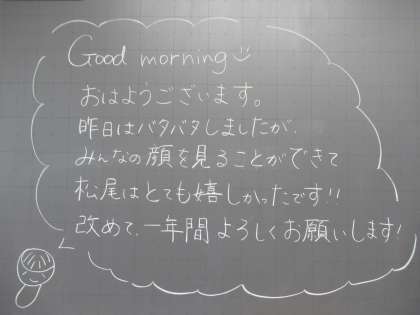 Good morning
おはようございます。
昨日はバタバタしましたが、
みんなの顔を見ることができて
松尾はとても嬉しかったです!!
改めて、一年間よろしくお願いします!